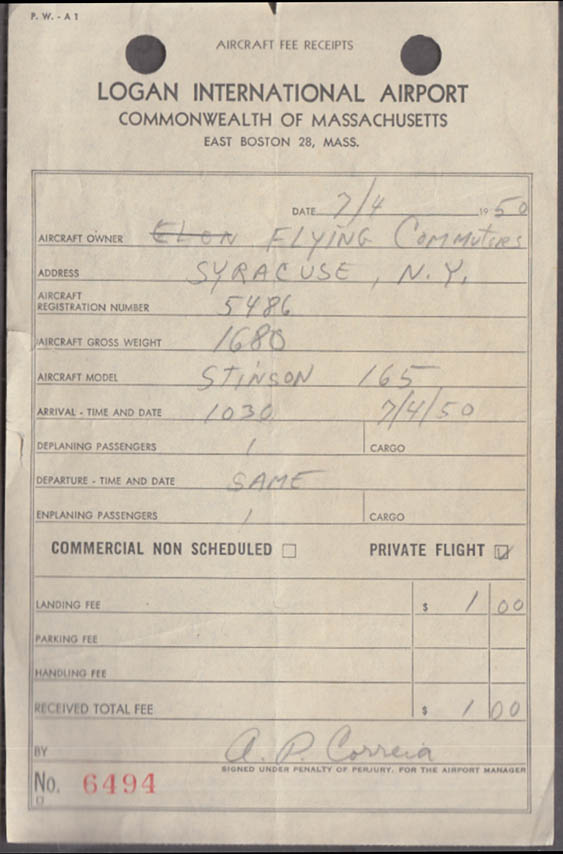 P. W. - A 1
AIRCRAFT FEE RECEIPTS
LOGAN INTERNATIONAL AIRPORT
COMMONWEALTH OF MASSACHUSETTS
EAST BOSTON 28, MASS.
DATE 7/4 19 50
AIRCRAFT OWNER FLYING COMMUTERS
ADDRESS SYRACUSE, N.Y.
AIRCRAFT
REGISTRATION NUMBER 5486
AIRCRAFT GROSS WEIGHT 1680
AIRCRAFT MODEL STINSON 165
ARRIVAL - TIME AND DATE 1030 7/4/50
DEPLANING PASSENGERS 1 CARGO
DEPARTURE - TIME AND DATE SAME
ENPLANING PASSENGERS 1 CARGO
COMMERCIAL NON SCHEDULED ☐ PRIVATE FLIGHT ☑
LANDING FEE $ 1 00
PARKING FEE
HANDLING FEE
RECEIVED TOTAL FEE $ 1 00
BY A. P. Correia
SIGNED UNDER PENALTY OF PERJURY, FOR THE AIRPORT MANAGER
No. 6494